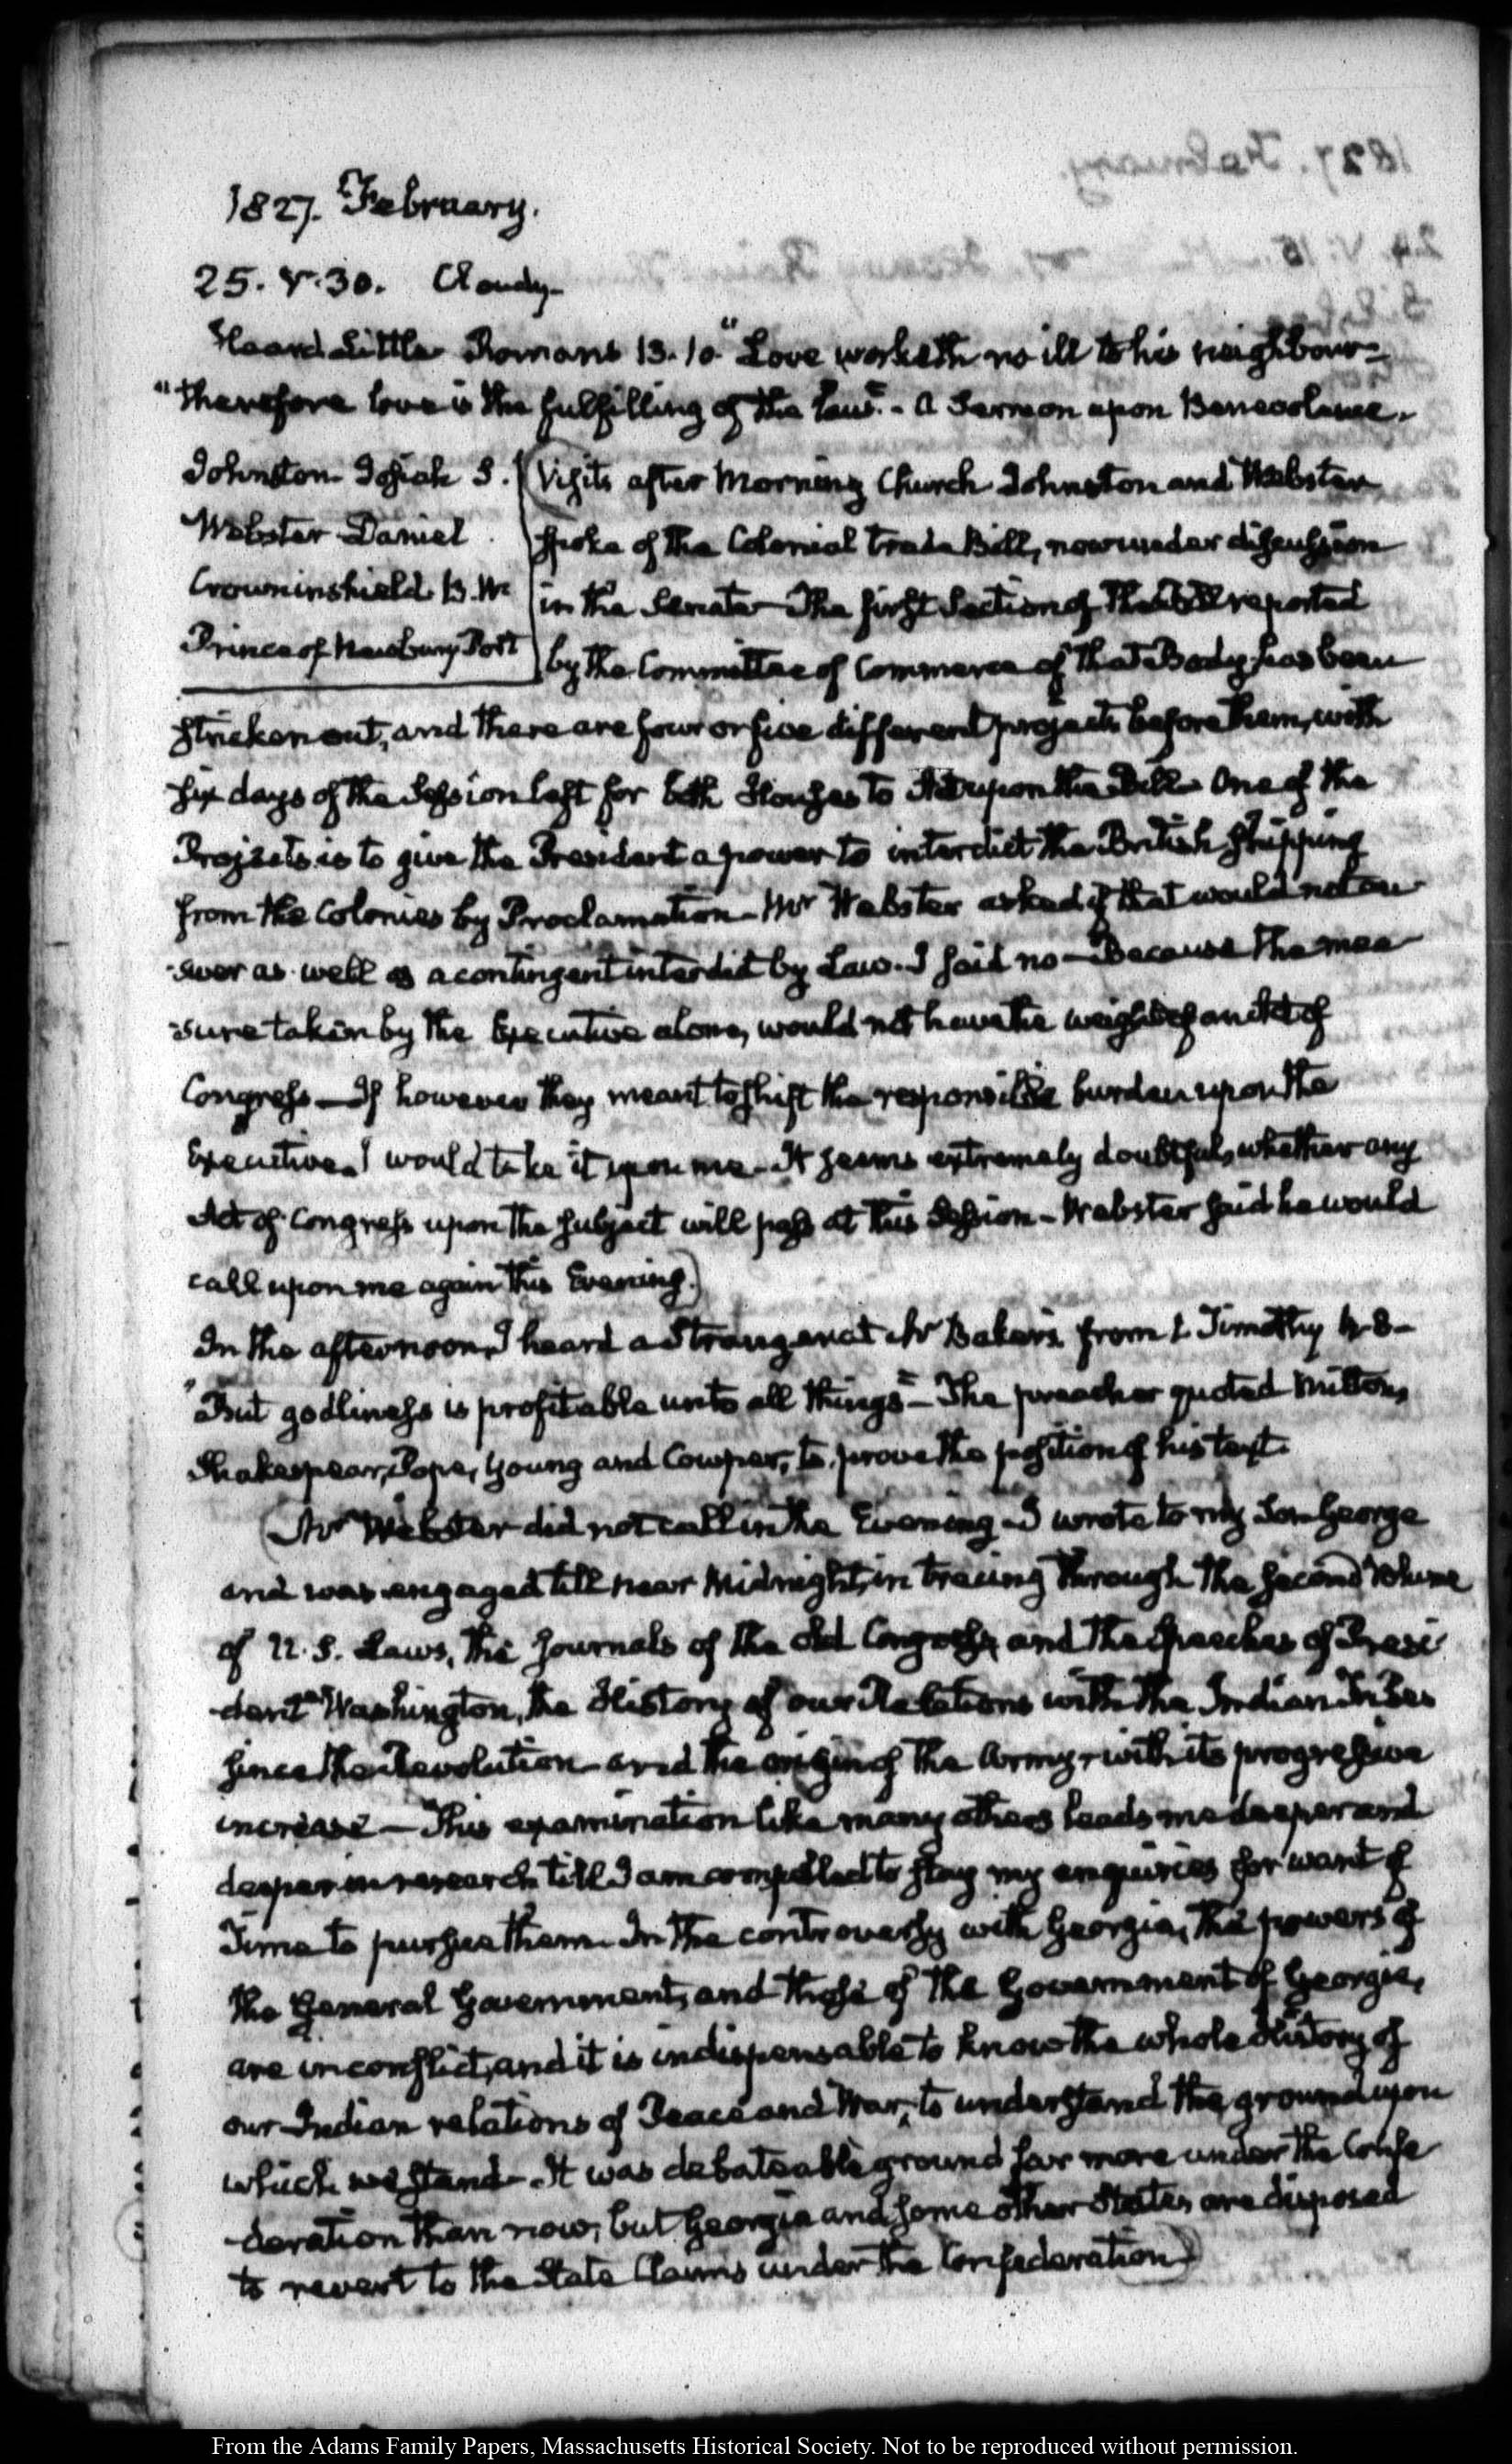 1827. February.
25. V. 30. Cloudy-
Heard Little Romans 13.10 "Love worketh no ill to his neighbour-
"therefore love is the fulfilling of the law". - A Sermon upon Benevolence.
Johnston Josiah S.
Webster Daniel
Crowninshield B. W.
Prince of Newbury Port
(Visits after Morning Church Johnston and Webster
spoke of the Colonial trade Bill, now under discussion
in the Senate- The first Section of the Bill reported
by the Committee of Commerce of that Body has been
stricken out, and there are four or five different projects before them, with
six days of the Session left for both Houses to Act upon the Bill- One of the
Projects is to give the President a power to interdict the British shipping
from the Colonies by Proclamation- Mr Webster asked if that would not an
-swer as well as a contingent interdict by Law. I said no- Because the mea
-sure taken by the Executive alone, would not have the weight of an Act of
Congress- If however they meant to shift the responsible burden upon the
Executive I would take it upon me- It seems extremely doubtful, whether any
Act of Congress upon the subject will pass at this Session- Webster said he would
call upon me again this Evening.)
In the afternoon, I heard a Stranger at Mr Baker's from 1. Timothy 4. 8-
"But godliness is profitable unto all things"- The preacher quoted Milton,
Shakespear, Pope, Young and Cowper, to prove the position of his text.
(Mr Webster did not call in the Evening- I wrote to my Son George
and was engaged till near Midnight, in tracing through the second Volume
of U. S. Laws, the Journals of the old Congress, and the Speeches of Presi
-dent Washington, the History of our Relations with the Indian Tribes
since the Revolution- and the origin of the Army, with its progressive
increase- This examination like many others leads me deeper and
deeper in research till I am compelled to stay my enquiries for want of
Time to pursue them. In the controversy with Georgia, the powers of
the General Government, and those of the Government of Georgia,
are in conflict, and it is indispensable to know the whole History of
our Indian relations of Peace and War, to understand the ground upon
which we stand- It was debateable ground far more under the Confe
-deration than now, but Georgia and some other States are disposed
to revert to the State Claims under the Confederation)
From the Adams Family Papers, Massachusetts Historical Society. Not to be reproduced without permission.